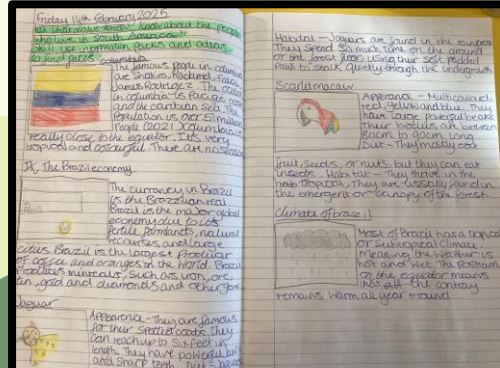 Friday 14th February 2025
know about the people
who live in South America.
Skill: use information packs and
to find facts
Columbia
The famous people in columbia
are Shakira, Radamel, Falcao
James Rodrigez. The oceans
in columbia is Pacific ocean
and the carribean sea. The
Population is over 51 million
People (2021) Columbia is
really close to the equator. It's very
tropical and colourful. There are no seasons
The Brazil economy.
The currency in Brazil
is the Brazzilian real
Brazil is the major global
economy due to its
fertile farmlants, natural
recourses and large
cities. Brazil is the largest Producer
of coffee and oranges in the world. Brazil
Produces minerals, such as iron, ore,
tin, gold and diamonds and other
Jaguar
Appearence - They are famous
for their spotted coats. They
can reach up to six feet in
length. They have powerful
and sharp teeth. Diet -
Habitat - Jaguars are found in the rainforest
They spend so much time on the ground
or the forest floor, using their soft padded
to stalk quietly through the undergrowth
Scarlet macaw
Apperence - Multicoloured
red, yellow and blue. They
have large powerful beaks
Their bodies are between
80cm to 90cm long.
Diet - They mostly eat
fruit, seeds, or nuts, but they can eat
insects. Habitat - They thrive in the
tropical, They are ussually found in
the emergent or canopy of the forest.
Climate of brazil
Most of Brazil has a tropical
or subtropical climate,
meaning the weather is
hot and wet. The Position
of the equator means
that all the contray
remains warm all year around